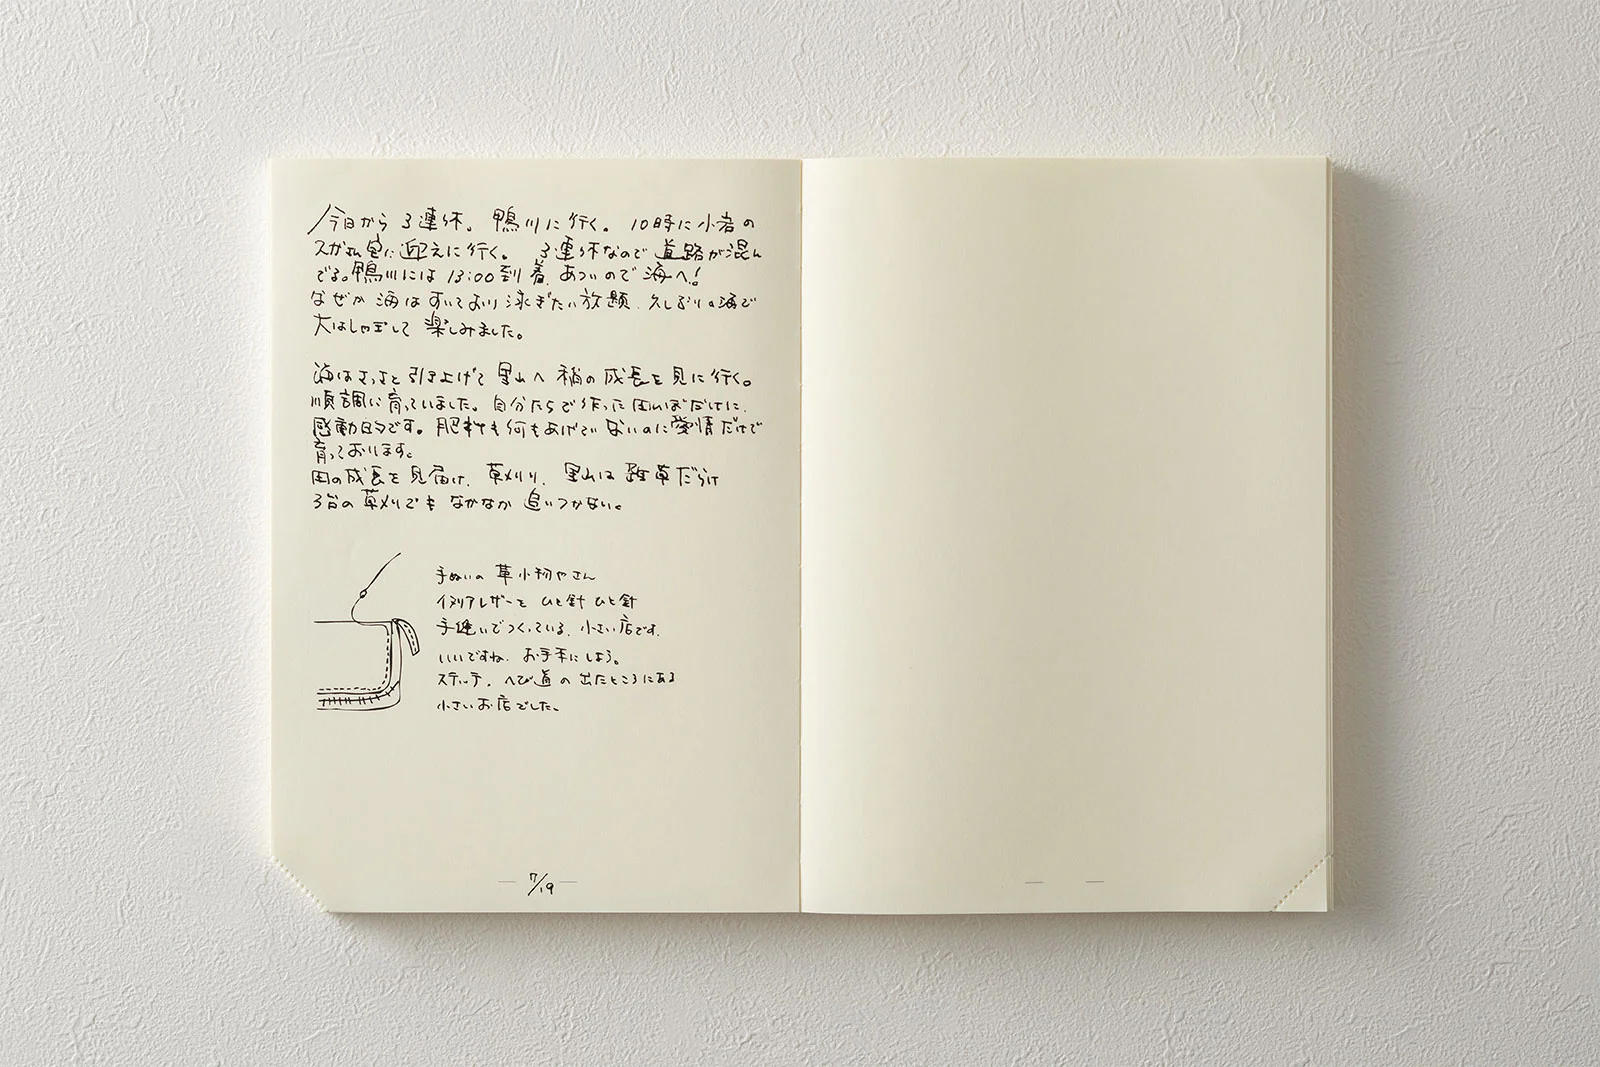 今日から 3連休。鴨川に行く。10時に小岩の
スガさん宅に迎えに行く。 3連休なので道路が混ん
でる。鴨川には 13:00到着、あついので海へ!
なぜか海はすいており泳ぎたい放題、久しぶりの海で
大はしゃぎして 楽しみました。
海はさっさと引き上げて里山へ 稲の成長を見に行く。
順調に育っていました。自分たちで作った田んぼだけに、
感動的です。肥料も何もあげていないのに愛情だけで
育っております。
田の成長を見届け、草刈り、里山は雑草だらけ
3台の草刈りでもなかなか追いつかない。
手ぬいの革小物やさん
イタリアレザーを ひと針ひと針
手縫いでつくっている、小さい店です。
いいですね、お手本にしよう。
ステッチ、へび道の出たところにある
小さいお店でした。
7/19